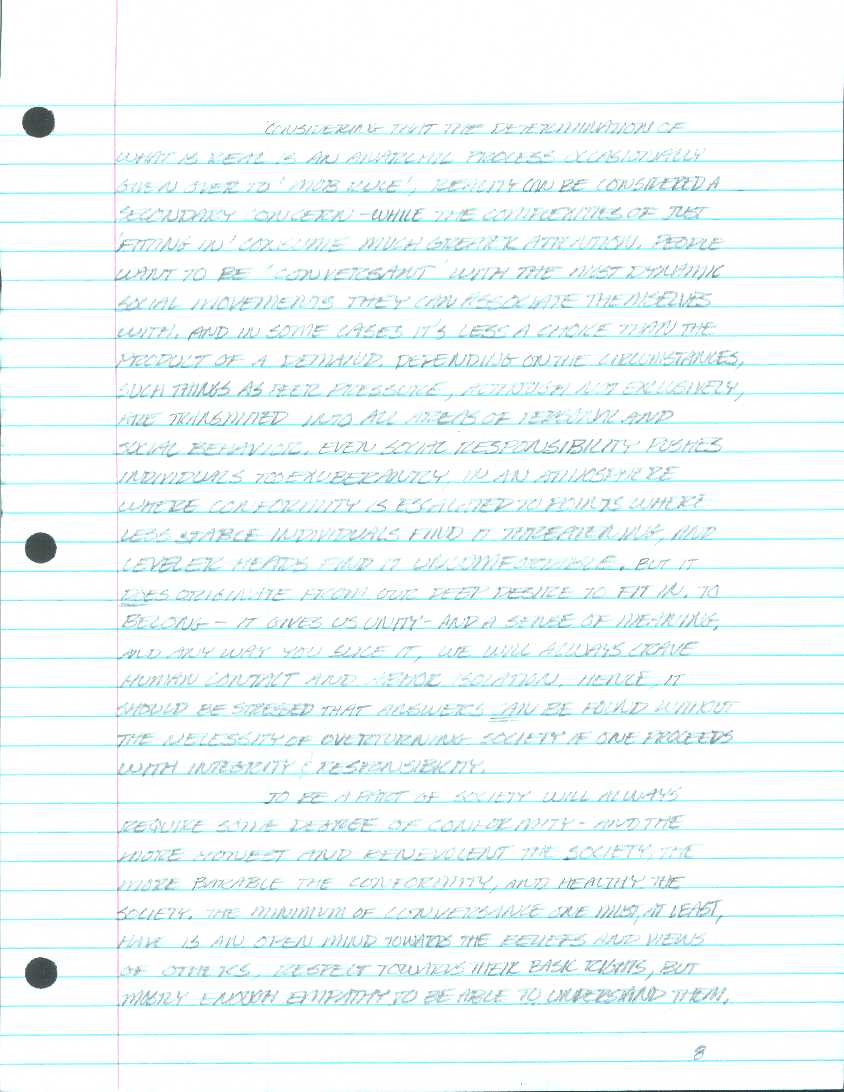 CONSIDERING THAT THE DETERMINATION OF
WHAT IS REAL IS AN ANARCHIC PROCESS OCCASIONALLY
GIVEN OVER TO 'MOB RULE', REALITY CAN BE CONSIDERED A
SECONDARY CONCERN - WHILE THE COMPLEXITIES OF JUST
'FITTING IN' CONSUME MUCH GREATER ATTENTION. PEOPLE
WANT TO BE 'CONVERSANT' WITH THE MOST DYNAMIC
SOCIAL MOVEMENTS THEY CAN ASSOCIATE THEMSELVES
WITH. AND IN SOME CASES IT'S LESS A CHOICE THAN THE
PRODUCT OF A DEMAND. DEPENDING ON THE CIRCUMSTANCES,
SUCH THINGS AS PEER PRESSURE, ALTHOUGH NOT EXCLUSIVELY,
ARE TRANSMITTED INTO ALL AREAS OF PERSONAL AND
SOCIAL BEHAVIOR. EVEN SOCIAL RESPONSIBILITY PUSHES
INDIVIDUALS TOO EXUBERANTLY IN AN ATMOSPHERE
WHERE CONFORMITY IS ESCALATED TO POINTS WHERE
LESS STABLE INDIVIDUALS FIND IT THREATENING, AND
LEVELER HEADS FIND IT UNCOMFORTABLE. BUT IT
DOES ORIGINATE FROM OUR DEEP DESIRE TO FIT IN. TO
BELONG - IT GIVES US UNITY - AND A SENSE OF MEANING,
AND ANY WAY YOU SLICE IT, WE WILL ALWAYS CRAVE
HUMAN CONTACT AND ABHOR ISOLATION. HENCE, IT
SHOULD BE STRESSED THAT ANSWERS CAN BE FOUND WITHOUT
THE NECESSITY OF OVERTURNING SOCIETY IF ONE PROCEEDS
WITH INTEGRITY & RESPONSIBILITY.
TO BE A PART OF SOCIETY WILL ALWAYS
REQUIRE SOME DEGREE OF CONFORMITY - AND THE
MORE HONEST AND BENEVOLENT THE SOCIETY, THE
MORE BEARABLE THE CONFORMITY, AND HEALTHY THE
SOCIETY. THE MINIMUM OF CONVERSANCE ONE MUST, AT LEAST,
HAVE IS AN OPEN MIND TOWARDS THE BELIEFS AND VIEWS
OF OTHERS, RESPECT TOWARDS THEIR BASIC RIGHTS, BUT
MOSTLY ENOUGH EMPATHY TO BE ABLE TO UNDERSTAND THEM.
8